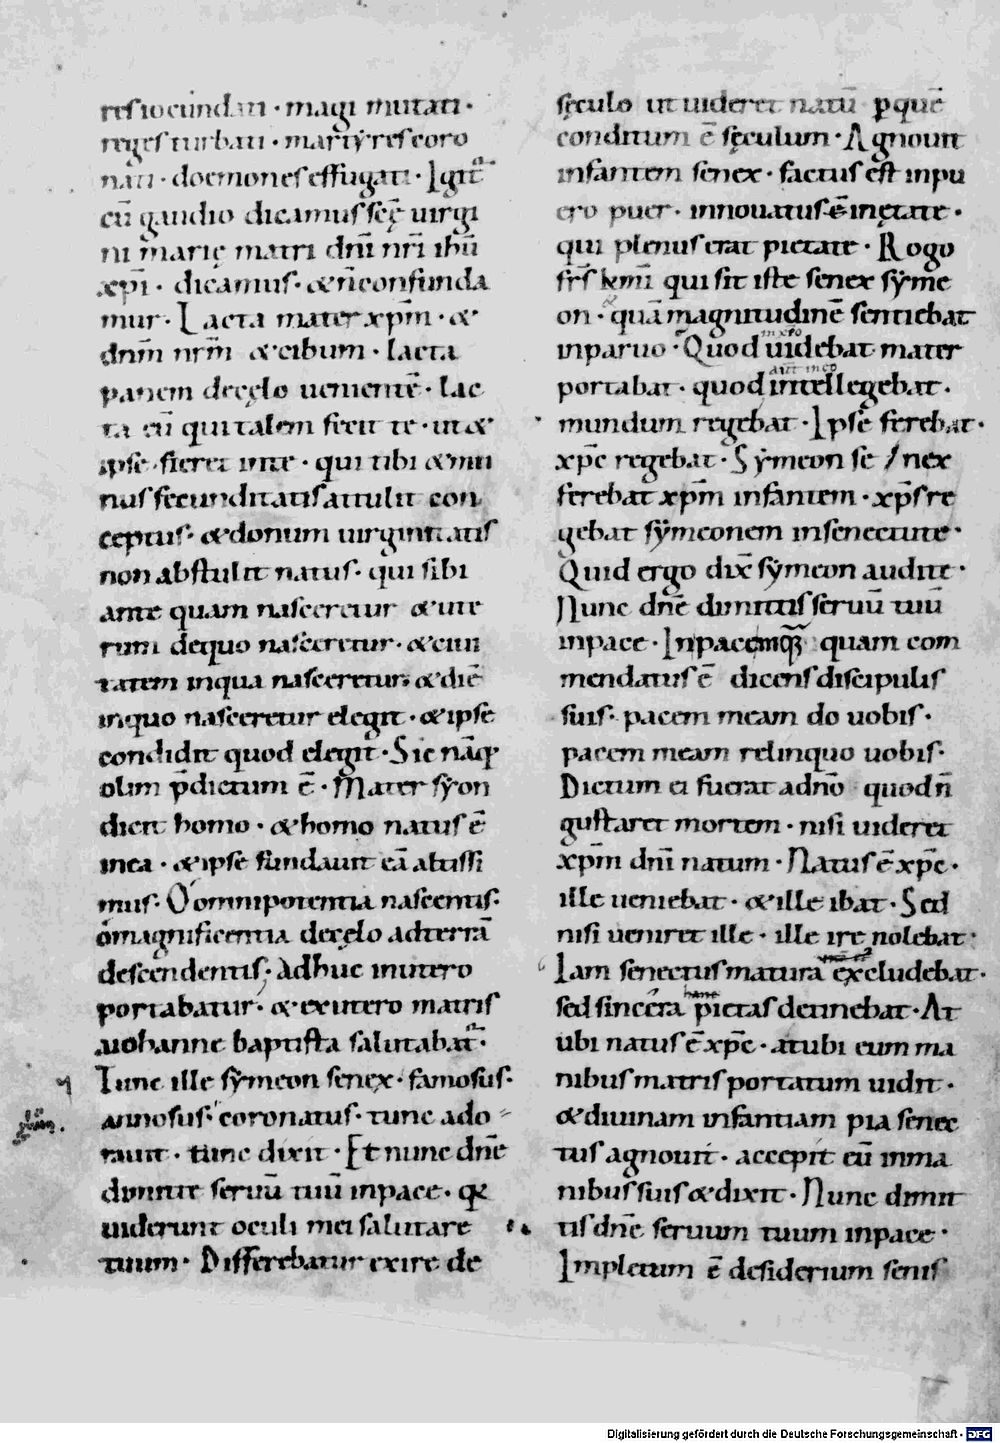 res iocundati · magi mutati ·
reges turbati · martẏres coro
nati · doemones effugati · Igit̄
cū gaudio dicamus sc̄ę uirgi
ni marię matri dn̄i nr̄i ih̄u
xp̄i · dicamus · & n̄ confunda
mur · Lacta mater xp̄m · &
dn̄m nr̄m & cibum · lacta
panem decęlo uenientē · lac
ta eū qui talem fecit te · ut &
ipse · fieret inte · qui tibi & mu
nus fecunditatis attulit con
ceptus · & donum uirginitatis
non abstulit natus · qui sibi
ante quam nasceretur & ute
rum dequo nasceretur · & ciui
tatem inqua nasceretur · & diē
inquo nasceretur elegit · & ipse
condidit quod elegit · Sic nāq;
olim p̄dictum ē · Mater sẏon
dicit homo · & homo natus ē
inea · & ipse fundauit eā altissi
mus · O omnipotentia nascentis ·
o magnificentia decęlo adterrā
descendentis · Adhuc inutero
portabatur · & exutero matris
iohanne baptista salutabat̄ ·
Tunc ille sẏmeon senex · famosus ·
annosus · coronatus · tunc ado
rauit · tunc dixit · Et nunc dn̄e
dimitte seruū tuū inpace · q̄
uiderunt oculi mei salutare
tuum · Differebatur exire de
sęculo ut uideret natū p quē
conditum ē sęculum · Agnouit
infantem senex · factus est inpu
ero puer · innouatus ē in ętate ·
qui plenus erat pietate · Rogo
frs̄ km̄i qui sit iste senex sẏme
on · quā magnitudinē sentiebat
inparuo · Quod uidebat mater
portabat · quod intellegebat ·
mundum regebat · Ipse ferebat ·
xp̄c regebat · Sẏmeon senex
ferebat xp̄m infantem · xp̄s re
gebat sẏmeonem insenectute ·
Quid ergo dix̄ sẏmeon audite ·
Nunc dn̄e dimittis seruū tuū
inpace · Inpace inq; quam com
mendatus ē dicens discipulis
suis · pacem meam do uobis ·
pacem meam relinquo uobis ·
Dictum ei fuerat adn̄o quod n̄
gustaret mortem · nisi uideret
xp̄m dn̄i natum · Natus ē xp̄c ·
ille ueniebat · & ille ibat · Sed
nisi ueniret ille · ille ire nolebat ·
Iam senectus matura excludebat ·
sed sincera hanc pietas detinebat · At
ubi natus ē xp̄c · at ubi eum ma
nibus matris portatum uidit ·
& diuinam infantiam pia senec
tus agnouit · accepit eū inma
nibus suis & dixit · Nunc dimit
tis dn̄e seruum tuum inpace ·
Impletum ē desiderium senis
Digitalisierung gefördert durch die Deutsche Forschungsgemeinschaft - DFG